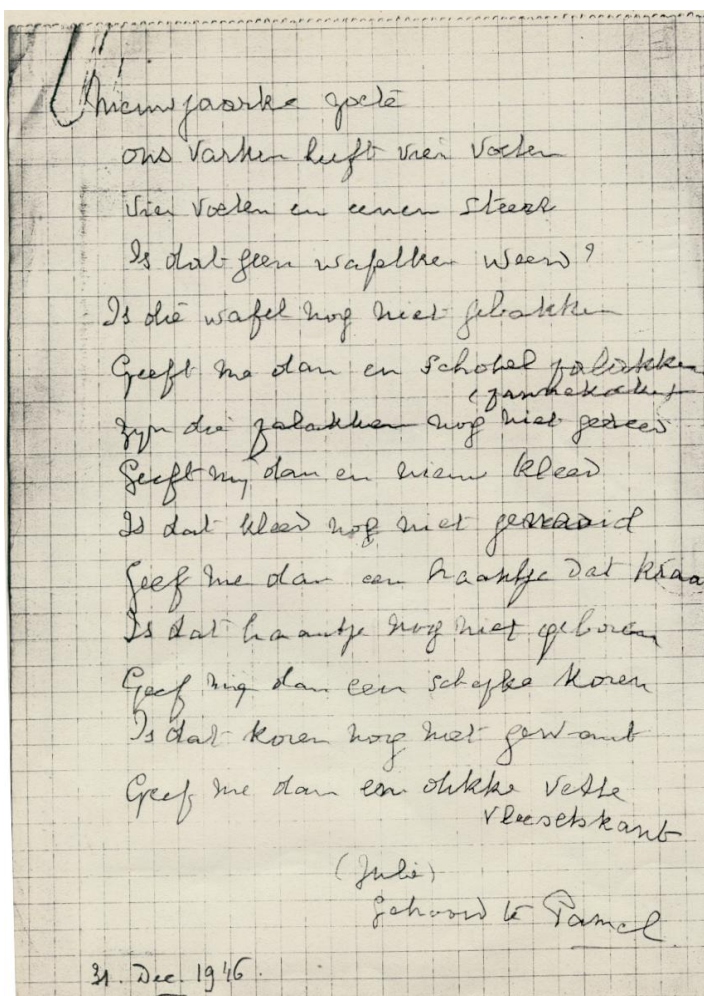 Nieuwjaarke zoete
ons varken heeft vier voeten
vier voeten en eenen steert
Is dat geen wafelken weerd?
Is die wafel nog niet gebakken
Geeft me dan en schotel palakken
(pannekoeken
zijn die palakken nog niet gereed
Geeft mij dan en nieuw kleed
Is dat kleed nog niet genaaid
Geef me dan een haantje dat kraa
Is dat haantje nog niet geboren
Geef mij dan een schepke koren
Is dat koren nog niet gewant
Geef me dan een dikke vette
vleeschkant
(Julie)
Gehoord te Pamel
31. Dec. 1946.